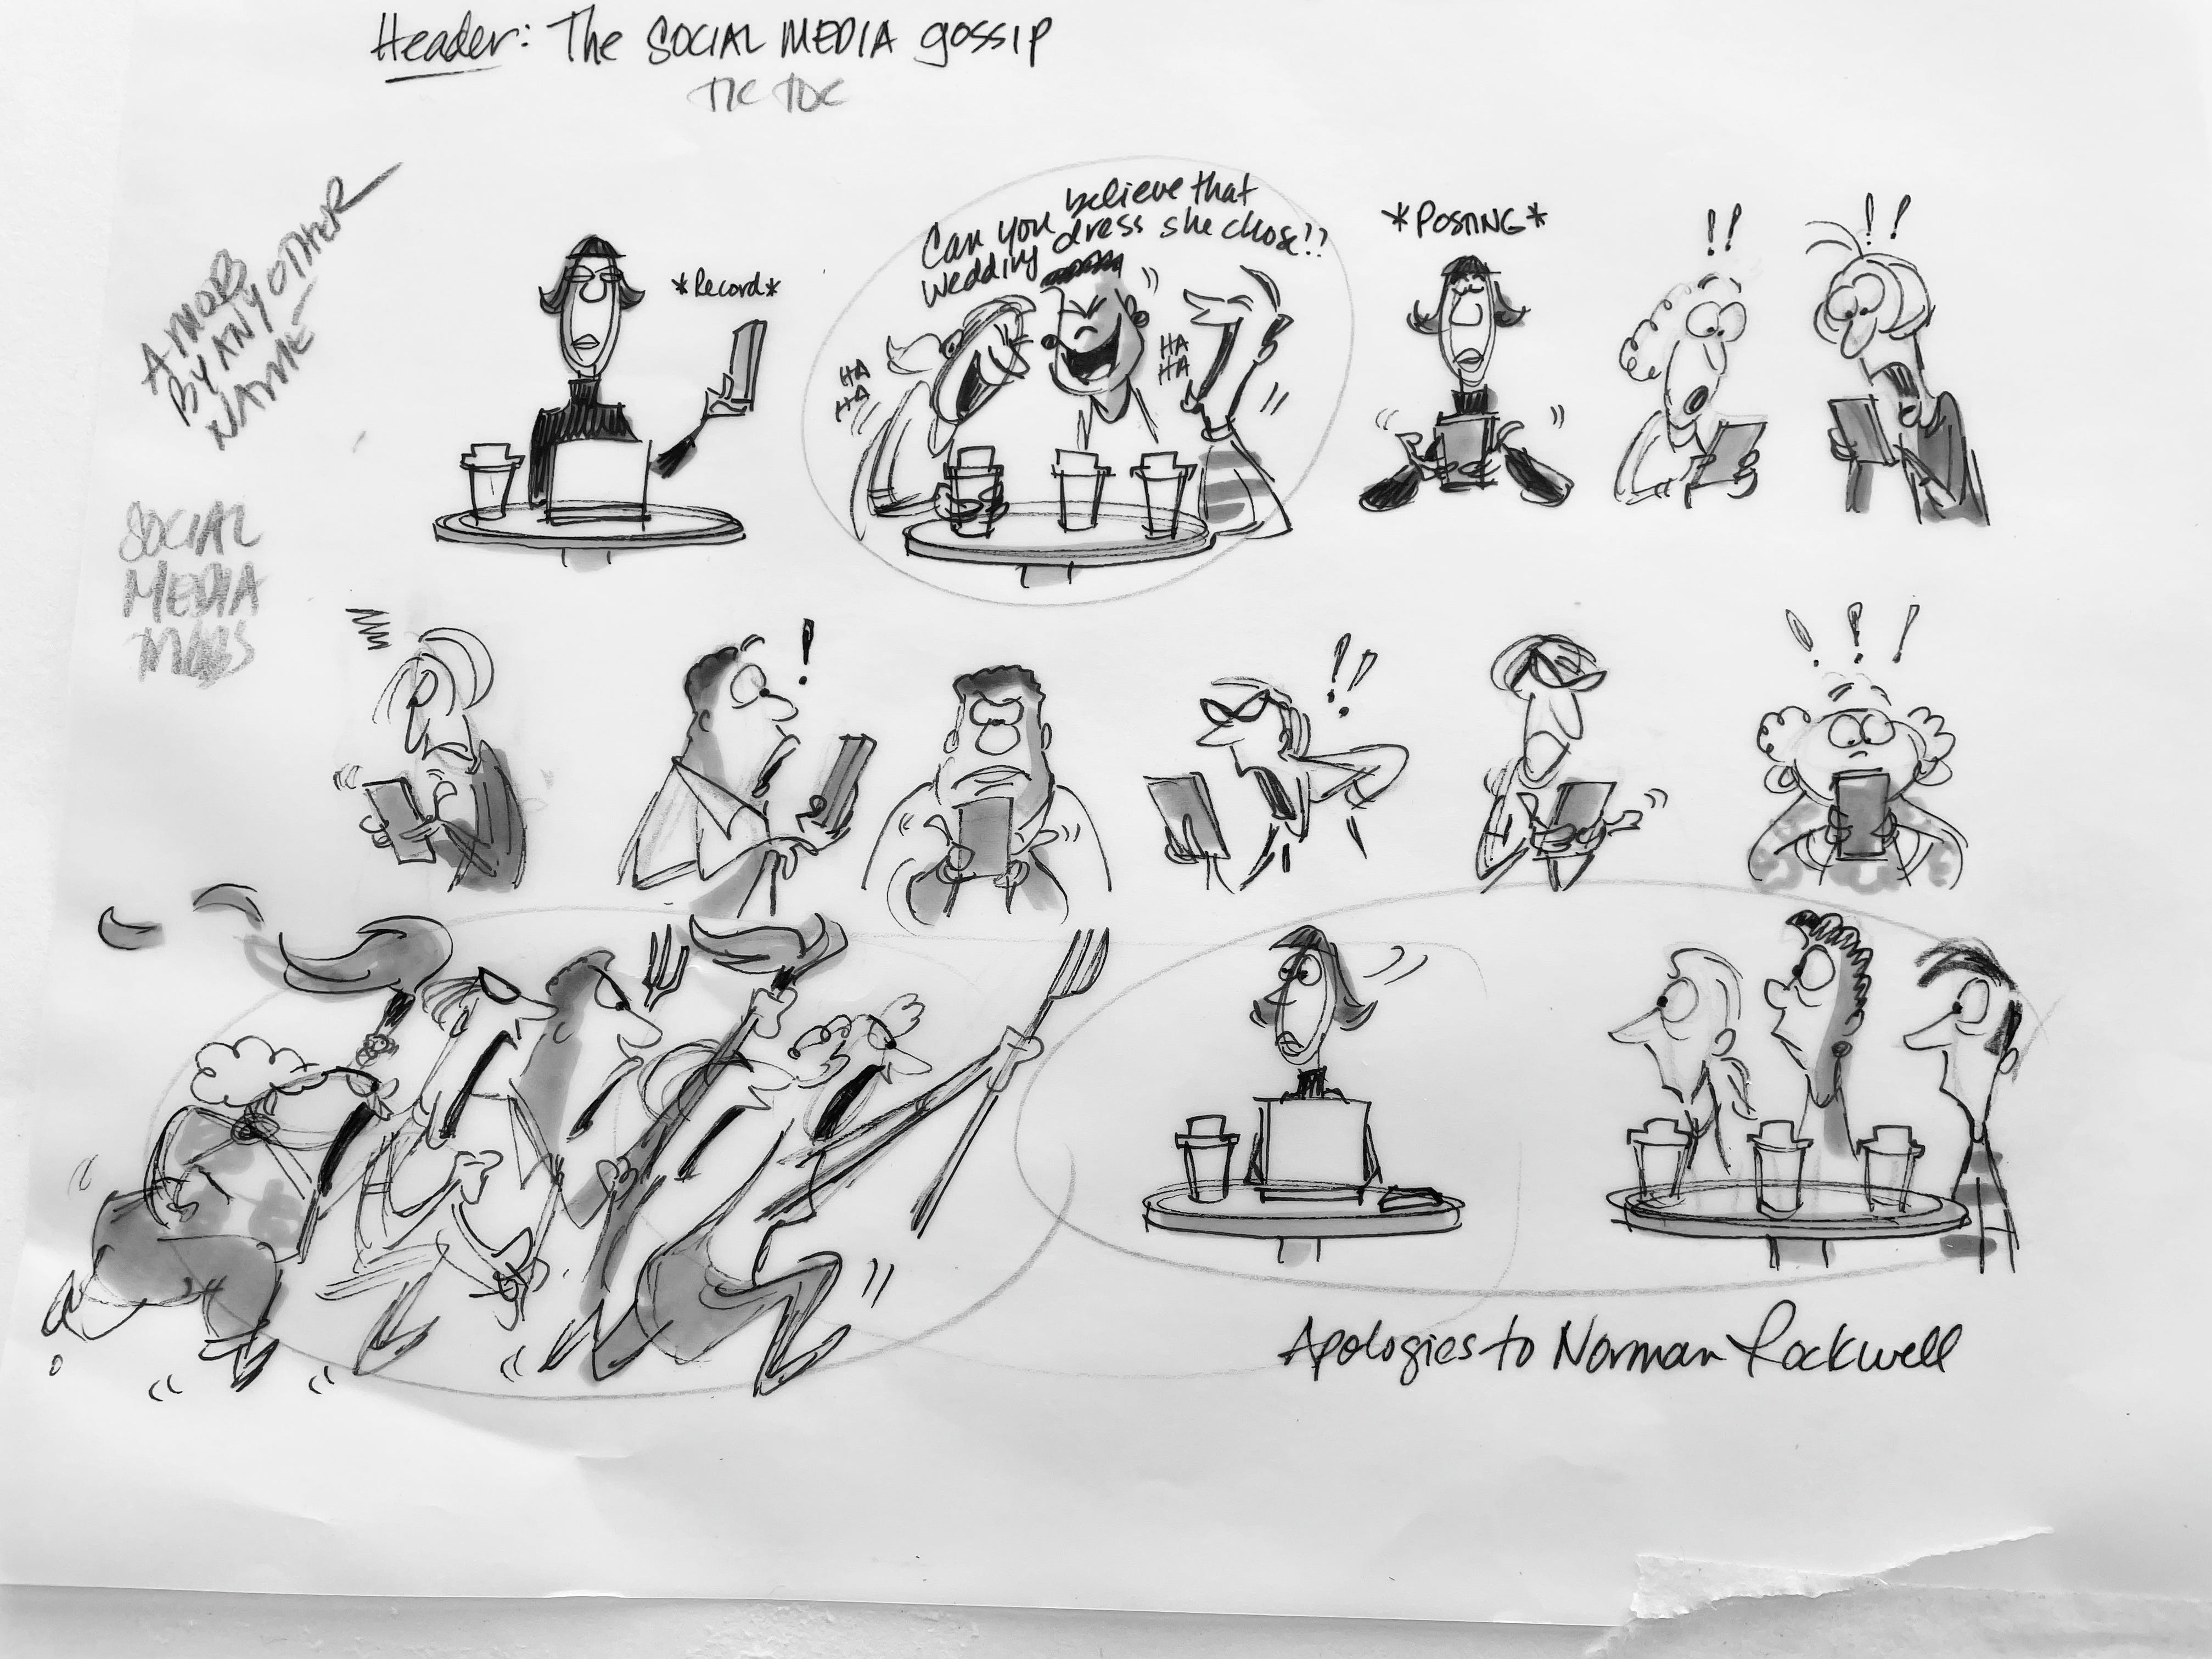 Header: The SOCIAL MEDIA gossip
TIC TOC
A MOB
BY ANY OTHER
NAME-
SOCIAL
MEDIA
MOBS
*Record*
Can you believe that
wedding dress she chose!!
HA
HA
HA
HA
*POSTING*
!!
!!
!
!!
! ! !
Apologies to Norman Rockwell